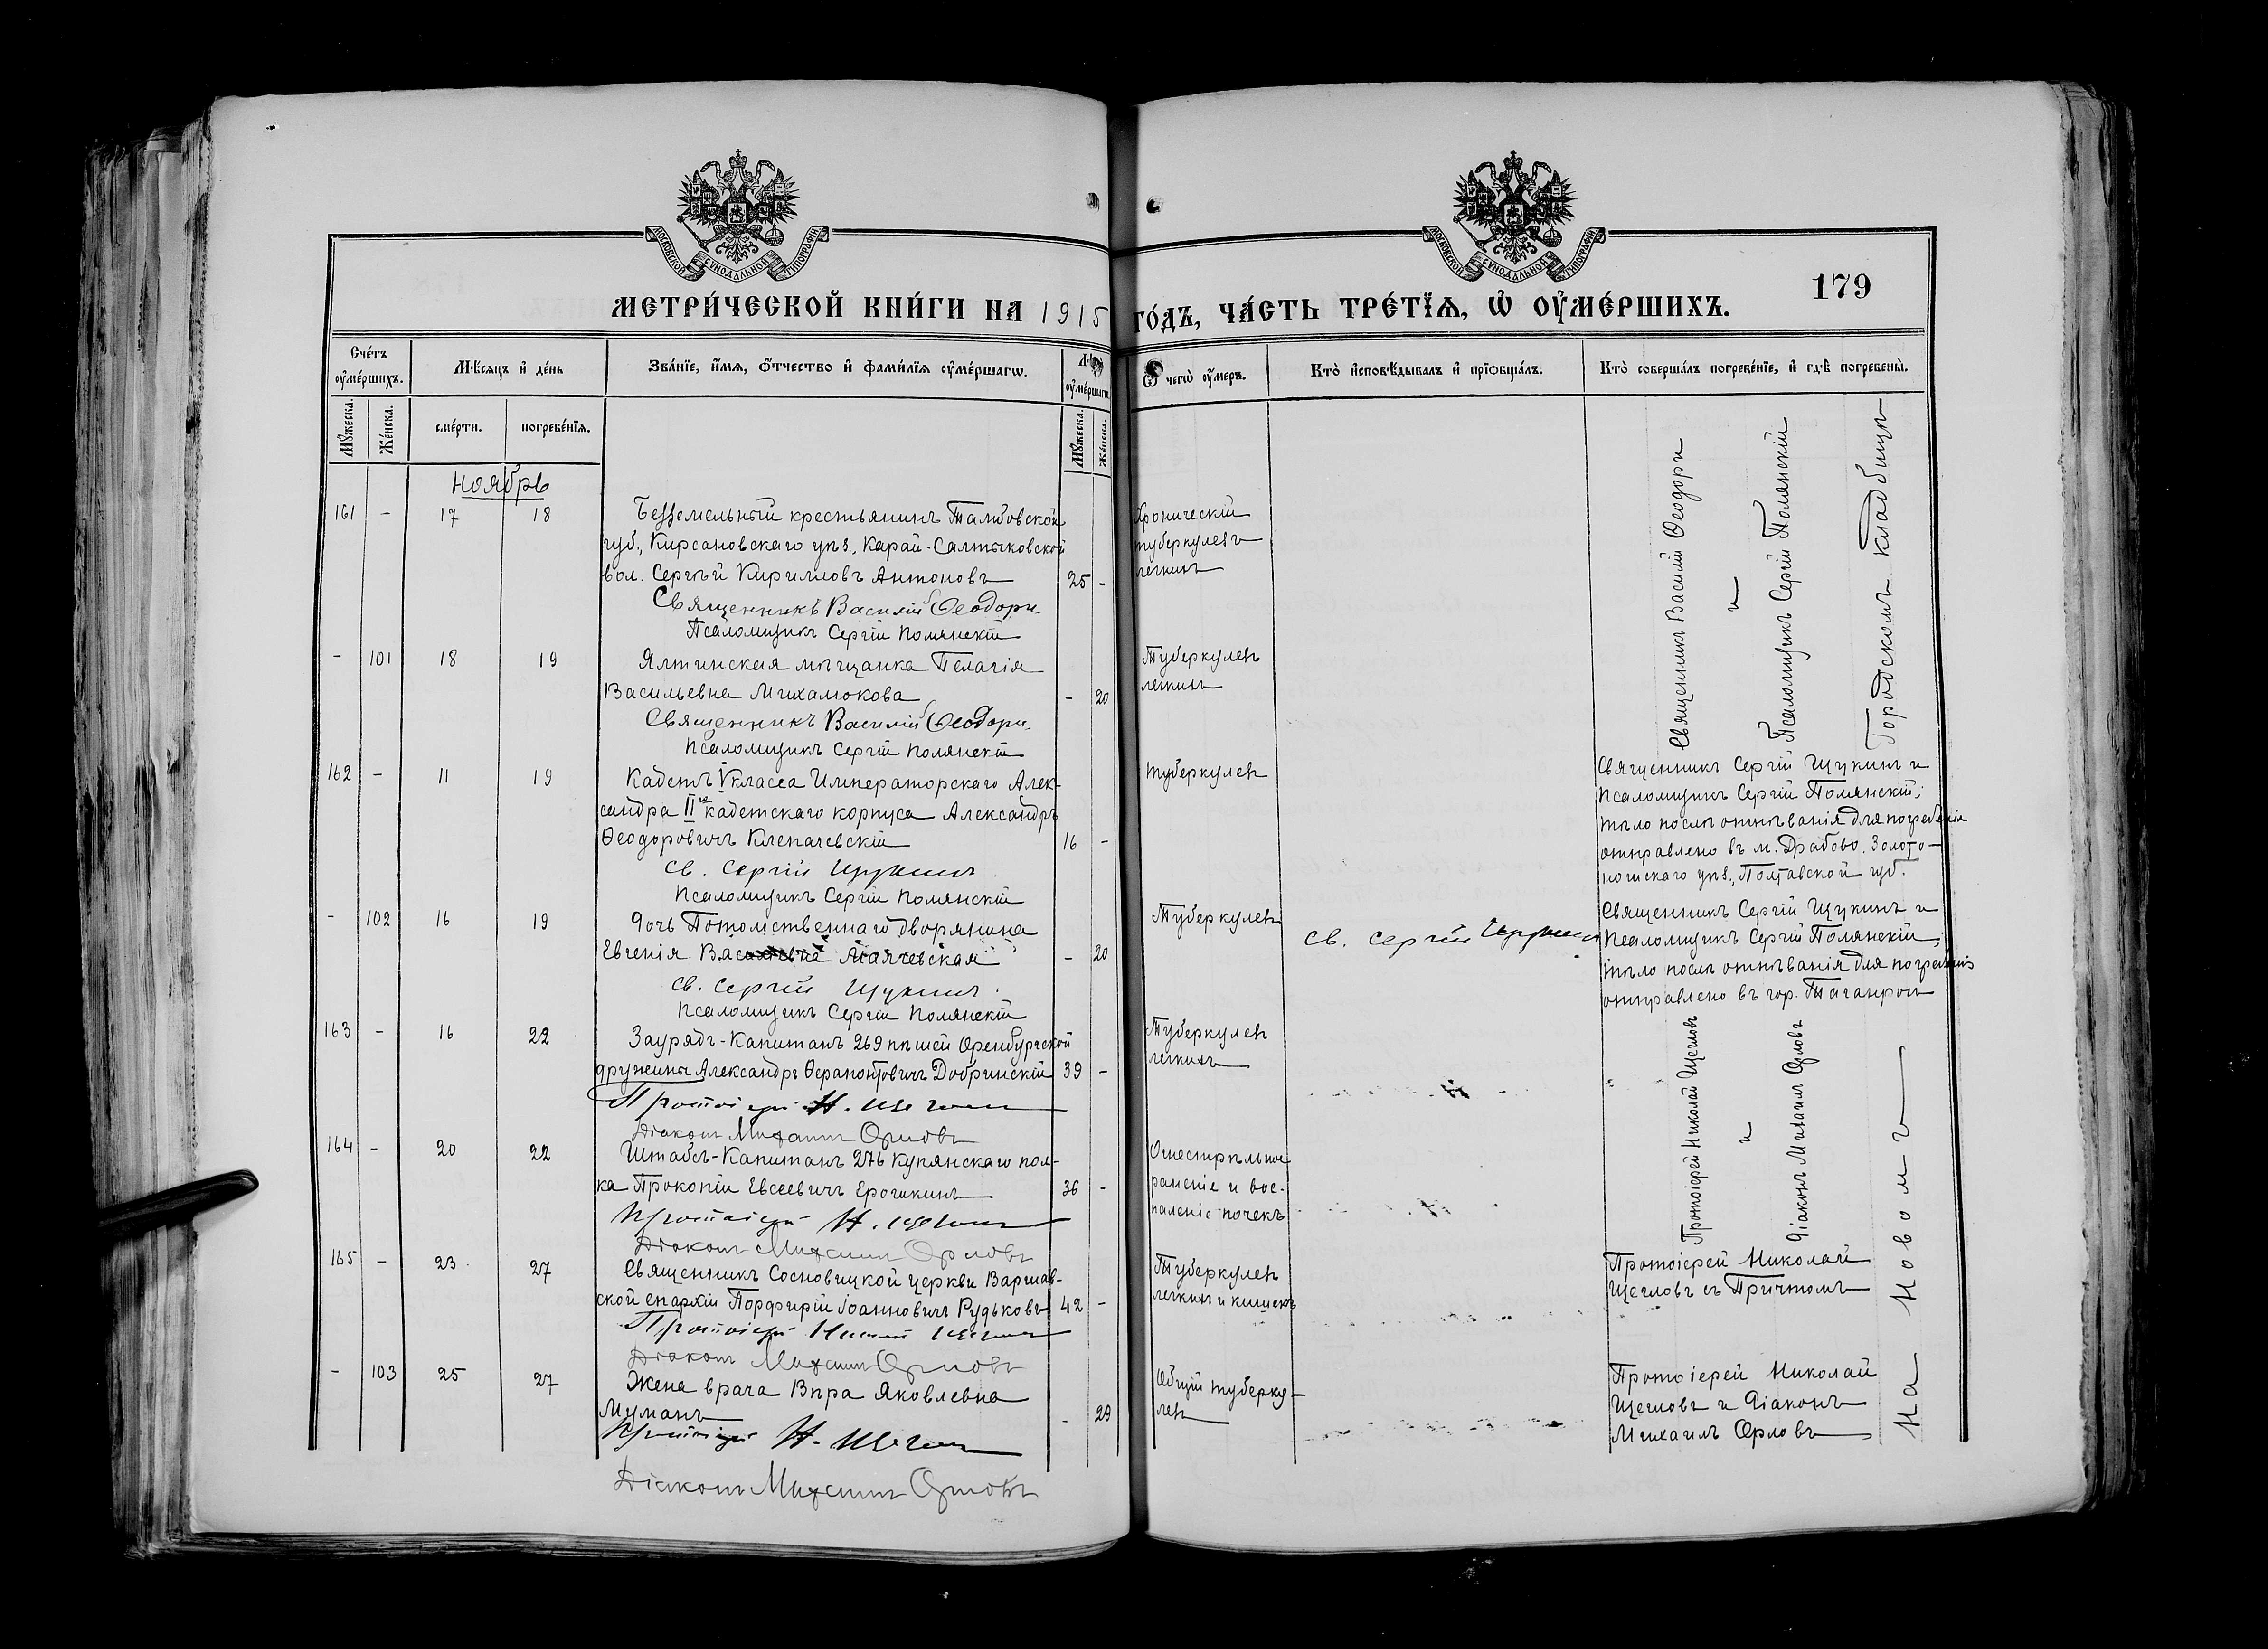 МОСКОВСКОЙ СУНОДАЛЬНОЙ ТИПОГРАФІИ
МОСКОВСКОЙ СУНОДАЛЬНОЙ ТИПОГРАФІИ
179
МЕТРИ́ЧЕСКОЙ КНИ́ГИ НА 1915 ГО́ДЪ, ЧА́СТЬ ТРЕ́ТІѦ, Ѡ ОУМЕ́РШИХЪ.
Сче́тъ оумершихъ.
Мѣсяцъ и день
Званіе, имя, отчество и фамилія оумершагѡ.
оумершагѡ.
Ѿ чегѡ оумеръ.
Кто исповѣдывалъ и пріобщалъ.
Кто совершалъ погребеніе, и гдѣ погребены.
Мꙋжеска.
Женска.
смерти.
погребенїѧ.
Мꙋжеска.
Женска.
Ноябрь
161 - 17 18 Безземельный крестьянинъ Тамбовской
губ., Кирсановскаго уѣз., Карай-Салтыковской
вол. Сергѣй Кирилловъ Антоновъ 25 -
Хроническій
туберкулезъ
легкихъ
Священникъ Василій Ѳеодори
Псаломщикъ Сергій Полянскій
- 101 18 19 Ялтинская мѣщанка Пелагія
Васильевна Михалюкова - 20
Туберкулезъ
легкихъ
Священникъ Василій Ѳеодори
Псаломщикъ Сергій Полянскій
Священникъ Василій Ѳеодори
и
Псаломщикъ Сергій Полянскій
Городскомъ кладбищѣ
162 - 11 19 Кадетъ V класса Императорскаго Алек-
сандра II го кадетскаго корпуса Александръ
Ѳеодоровичъ Клепачевскій 16 -
туберкулезъ
Св. Сергій Щукинъ.
Псаломщикъ Сергій Полянскій
Священникъ Сергій Щукинъ и
Псаломщикъ Сергій Полянскій;
тѣло послѣ отпѣванія для погребенія
отправлено въ м. Драбово, Золото-
ношскаго уѣз., Полтавской губ.
- 102 16 19 Дочь Потомственнаго дворянина
Евгенія - 20
Туберкулезъ
Св. Сергій Щукинъ
Св. Сергій Щукинъ.
Псаломщикъ Сергій Полянскій
Священникъ Сергій Щукинъ и
Псаломщикъ Сергій Полянскій;
тѣло послѣ отпѣванія для погребенія
отправлено въ гор. Таганрогъ
163 - 16 22 Заурядъ-Капитанъ 269 пѣшей Оренбургской
дружины Александръ Ѳерапонтовичъ Добринскій 39 -
Туберкулезъ
легкихъ
Протоіерей Н. Щегловъ
Діаконъ Михаилъ Орловъ
164 - 20 22 Штабсъ-Капитанъ 276 Купянскаго пол-
ка Прокопій Евсеевичъ Ерошкинъ 36 -
Огнестрѣльное
раненіе и вос-
паленіе почекъ
Протоіерей Н. Щегловъ
Діаконъ Михаилъ Орловъ
Протоіерей Николай Щегловъ
и
Діаконъ Михаилъ Орловъ
На Новомъ
165 - 23 27 Священникъ Сосновицкой церкви Варшав-
ской епархіи Порфирій Іоанновичъ Рудьковъ 42 -
Туберкулезъ
легкихъ и кишекъ
Протоіерей Николай
Щегловъ съ Причтомъ
Протоіерей Николай Щегловъ
Діаконъ Михаилъ Орловъ
- 103 25 27 Жена врача Вѣра Яковлевна
Муманъ - 29
Общій туберку-
лезъ
Протоіерей Николай
Щегловъ и Діаконъ
Михаилъ Орловъ
Протоіерей Н. Щегловъ
Діаконъ Михаилъ Орловъ